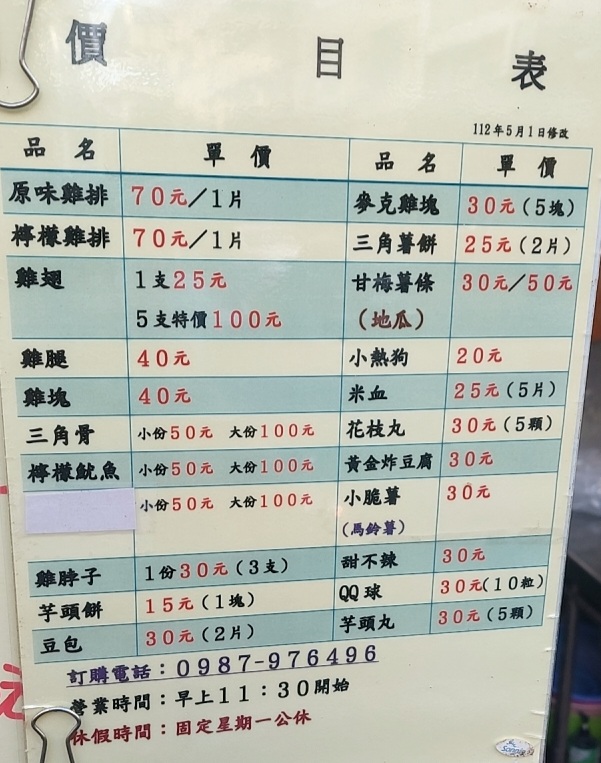 價目表
112年5月1日修改
品名 單價 品名 單價
原味雞排 70元/1片 麥克雞塊 30元(5塊)
檸檬雞排 70元/1片 三角薯餅 25元(2片)
雞翅 1支25元 甘梅薯條 30元/50元
5支特價100元 (地瓜)
雞腿 40元 小熱狗 20元
雞塊 40元 米血 25元(5片)
三角骨 小份50元 大份100元 花枝丸 30元(5顆)
檸檬魷魚 小份50元 大份100元 黃金炸豆腐 30元
小份50元 大份100元 小脆薯 30元
(馬鈴薯)
雞脖子 1份30元(3支) 甜不辣 30元
芋頭餅 15元(1塊) QQ球 30元(10粒)
豆包 30元(2片) 芋頭丸 30元(5顆)
訂購電話:0987-976496
營業時間:早上11:30開始
休假時間:固定星期一公休
元